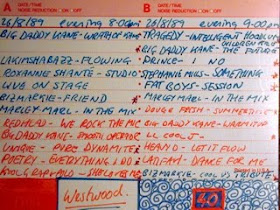 A DATE/TIME
NOISE REDUCTION ON OFF
B DATE/TIME
NOISE REDUCTION ON OFF
26/8/89 evening 8:00am
26/8/89 evening 9:00
BIG DADDY KANE - WRATH OF KANE
TRAGEDY - INTELLIGENT HOODLUM
CHILDREN ARE
BIG DADDY KANE - THE FUTURE
LAKIM SHABAZZ - FLOWING
PRINCE - NO
ROXANNE SHANTE - STUDIO
STEPHANIE MILLS - SOMETHING
LIVE ON STAGE
FAT BOYS - SESSION
BIZ MARKIE - FRIEND
MARLEY MARL - IN THE MIX
MARLEY MARL - IN THE MIX
DOUGIE FRESH - SUMMERTIME
REDHEAD - WE ROCK THE MIC
BIG DADDY KANE -
BIG DADDY KANE - SMOOTH OPERATOR
LL COOL J -
UNIQUE - PURE DYNAMITE
HEAVY D - GOT IT GOIN
POETRY - EVERYTHING I DO
DANCE FOR ME
KOOL G RAP & POLO -
BIZ MARKIE - COOL VS
Printed in U.S.A.
Westwood.
40